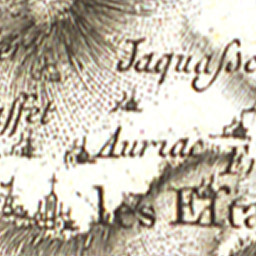 Jaquaſsc
ſſet
Auriac
les Eſta